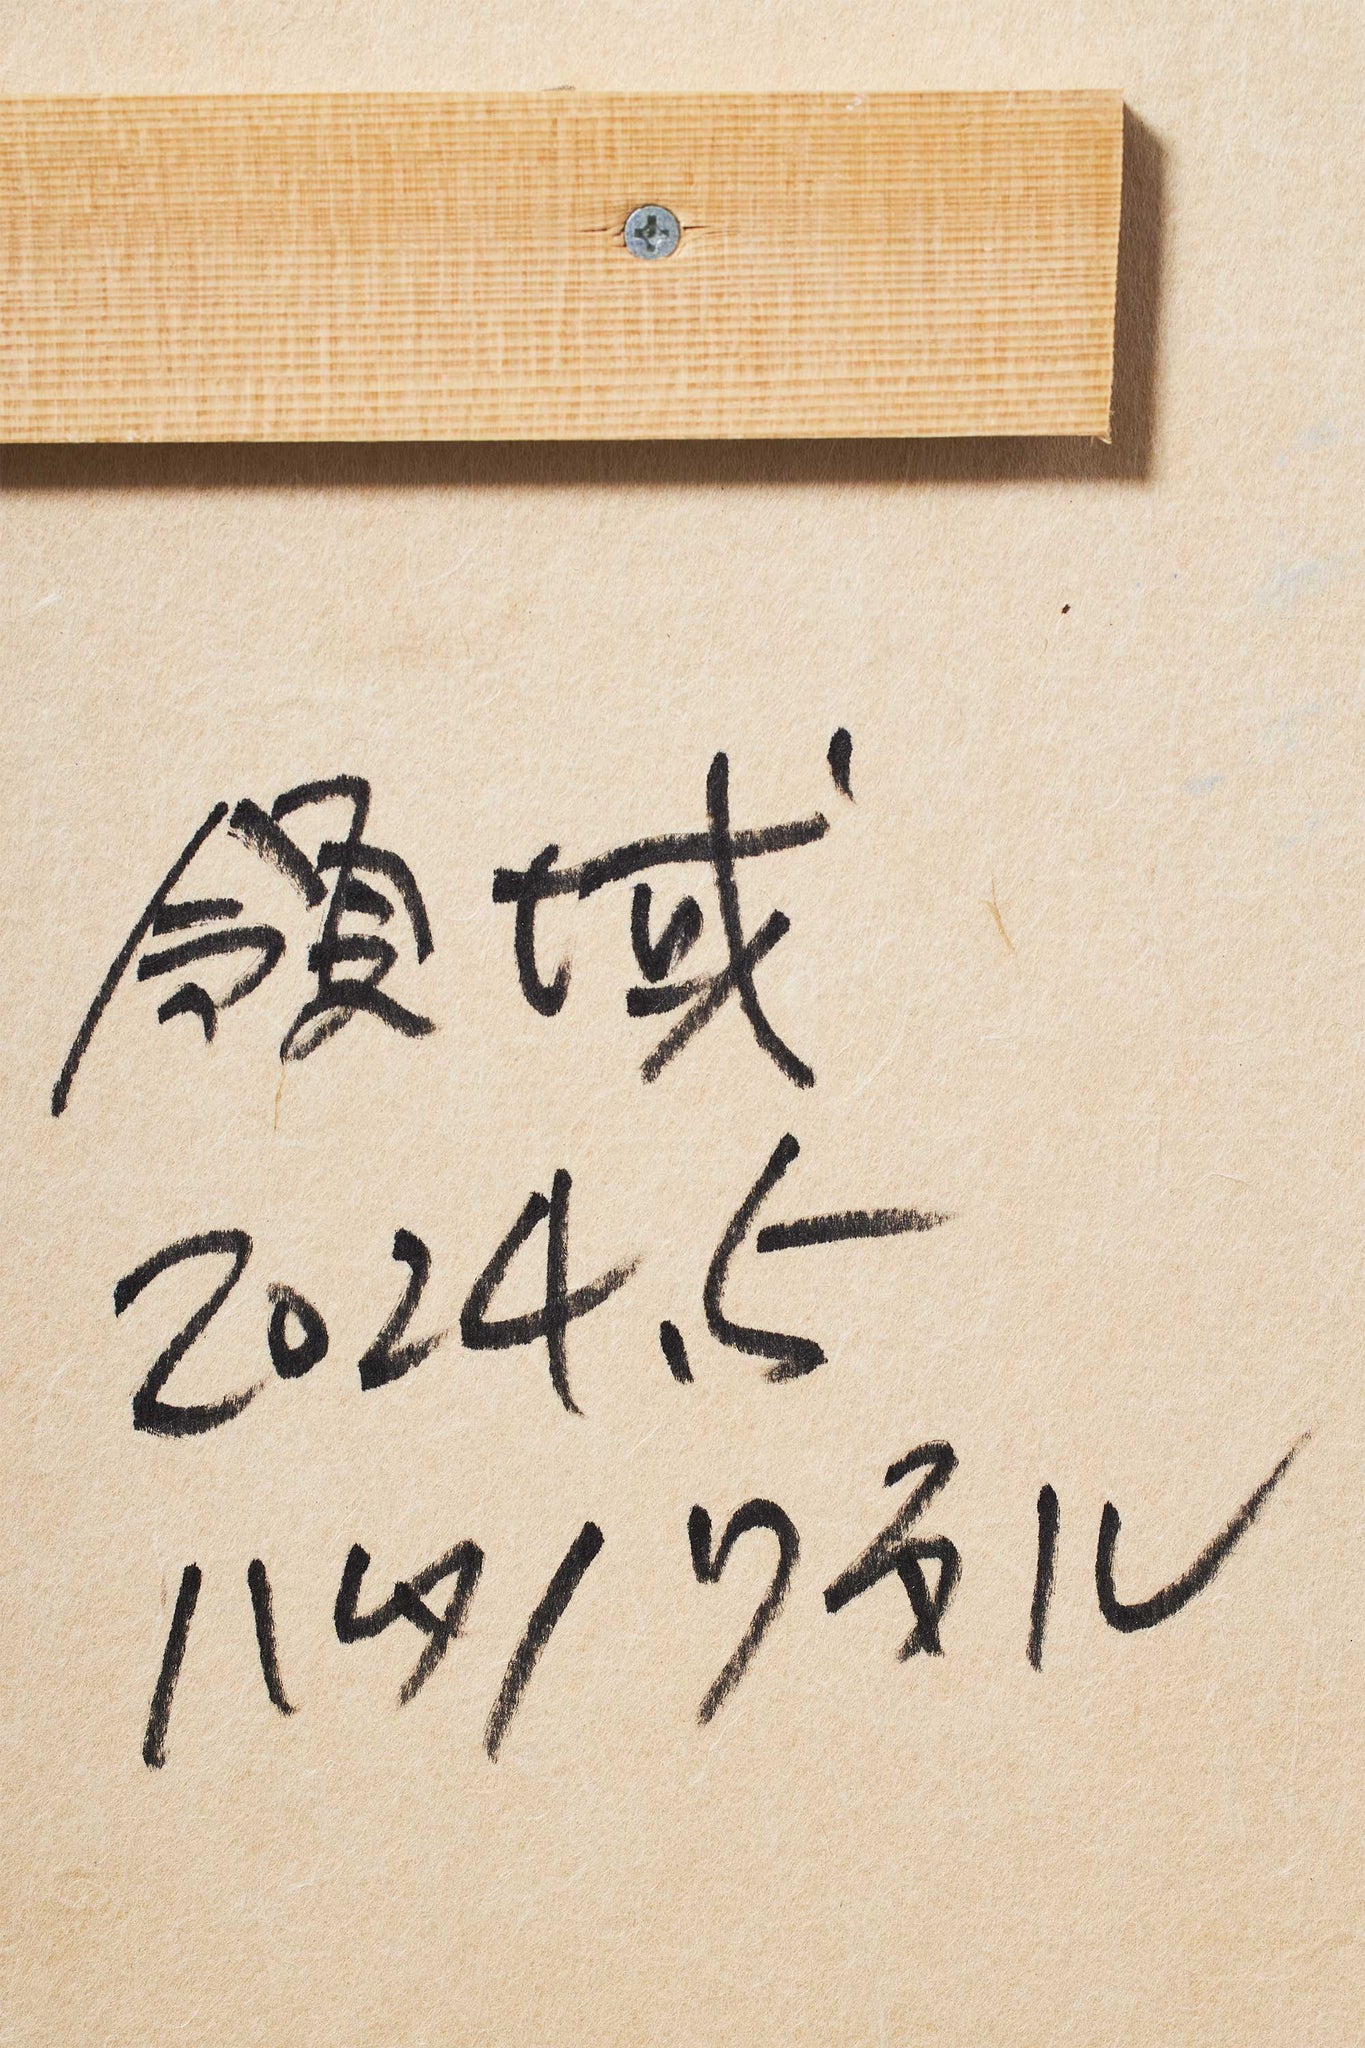 領域
2024.5
ハタノワタル